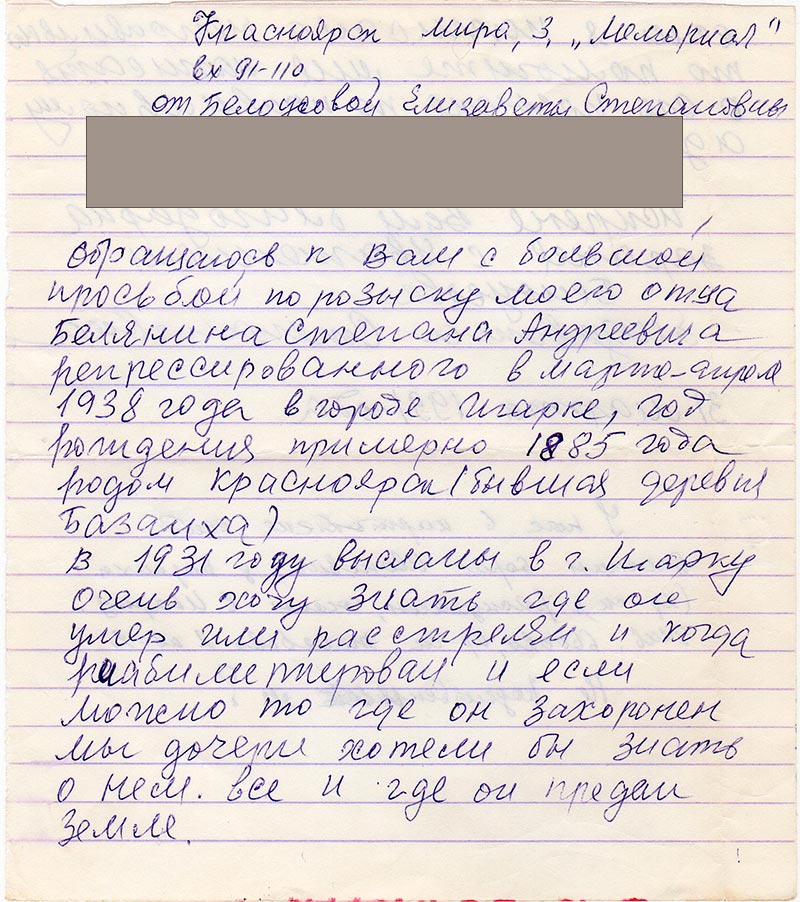 Красноярск Мира, 3, „Мемориал"
вх 91-110
от Белоусовой Елизаветы Степановны
Обращаюсь к Вам с большой
просьбой по розыску моего отца
Белянина Степана Андреевича
репрессированного в марте-апреле
1938 года в городе Игарке, год
рождения примерно 1885 года
родом Красноярск (бывшая деревня
Базаиха)
В 1931 году высланы в г. Игарку
очень хочу знать где он
умер или расстрелян и когда
раабилитирован и если
можно то где он захоронен
мы дочери хотели бы знать
о нем. все и где он предан
земле.